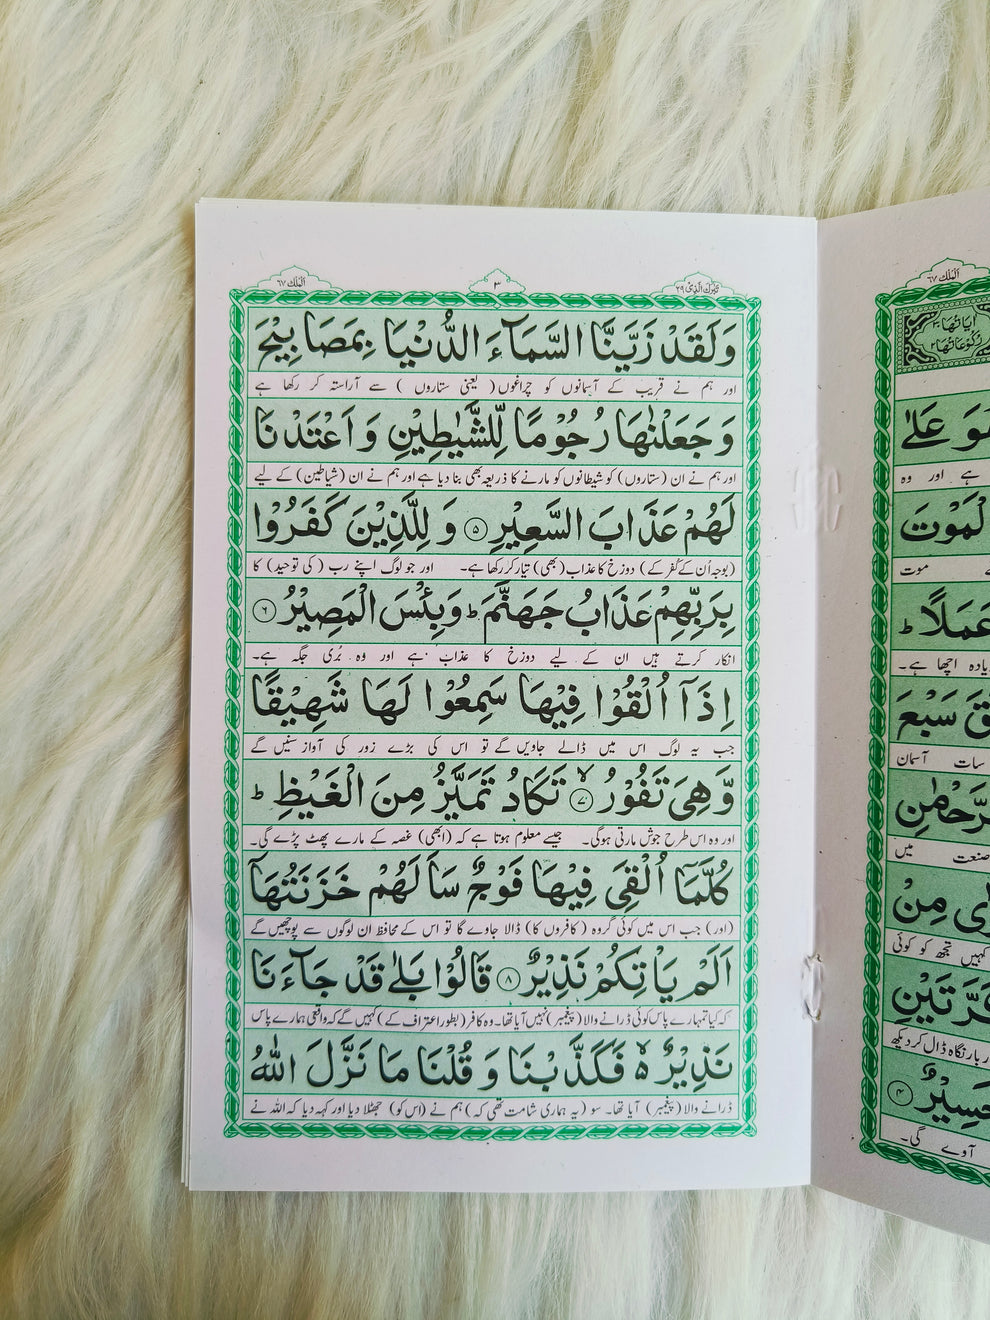 تبٰرک الذی ٢٩
٣
الملك ٦٧
وَلَقَدْ زَيَّنَّا السَّمَآءَ الدُّنْيَا بِمَصَابِيْحَ
اور ہم نے قریب کے آسمانوں کو چراغوں ( یعنی ستاروں ) سے آراستہ کر رکھا ہے
وَجَعَلْنٰهَا رُجُوْمًا لِّلشَّيٰطِيْنِ وَاَعْتَدْنَا
اور ہم نے ان (ستاروں) کو شیطانوں کو مارنے کا ذریعہ بھی بنا دیا ہے اور ہم نے ان (شیاطین) کے لیے
لَهُمْ عَذَابَ السَّعِيْرِ ۝٥ وَ لِلَّذِيْنَ كَفَرُوْا
(بوجہ اُن کے کفر کے) دوزخ کا عذاب (بھی) تیار کر رکھا ہے۔ اور جو لوگ اپنے رب ( کی توحید) کا
بِرَبِّهِمْ عَذَابُ جَهَنَّمَ ؕ وَبِئْسَ الْمَصِيْرُ ۝٦
انکار کرتے ہیں ان کے لیے دوزخ کا عذاب ہے اور وہ بُری جگہ ہے۔
اِذَآ اُلْقُوْا فِيْهَا سَمِعُوْا لَهَا شَهِيْقًا
جب یہ لوگ اس میں ڈالے جاویں گے تو اس کی بڑے زور کی آواز سنیں گے
وَّهِيَ تَفُوْرُ ۝٧ۙ تَكَادُ تَمَيَّزُ مِنَ الْغَيْظِ ؕ
اور وہ اس طرح جوش مارتی ہوگی۔ جیسے معلوم ہوتا ہے کہ (ابھی) غصہ کے مارے پھٹ پڑے گی۔
كُلَّمَآ اُلْقِيَ فِيْهَا فَوْجٌ سَاَلَهُمْ خَزَنَتُهَآ
(اور) جب اس میں کوئی گروہ ( کافروں کا) ڈالا جاوے گا تو اس کے محافظ ان لوگوں سے پوچھیں گے
اَلَمْ يَاْتِكُمْ نَذِيْرٌ ۝٨ قَالُوْا بَلٰى قَدْ جَآءَنَا
کہ کیا تمہارے پاس کوئی ڈرانے والا (پیغمبر) نہیں آیا تھا۔ وہ کافر (بطور اعتراف کے) کہیں گے کہ واقعی ہمارے پاس
نَذِيْرٌ ۙ فَكَذَّبْنَا وَ قُلْنَا مَا نَزَّلَ اللّٰهُ
ڈرانے والا (پیغمبر) آیا تھا۔ سو (یہ ہماری شامت تھی کہ) ہم نے (اس کو) جھٹلا دیا اور کہہ دیا کہ اللہ نے
الملك ٦٧
اٰيَاتُهَا ٣٠
رُكُوْعَاتُهَا ٢
عَلٰى
ہے اور وہ
موت
عَمَلًا ؕ
اچھا ہے۔
سَبْعَ
سات آسمان
صنعت میں
مِنْ
کہیں تجھ کو کوئی
بار نگاہ ڈال کر دیکھ
۝٤
آوے گی۔